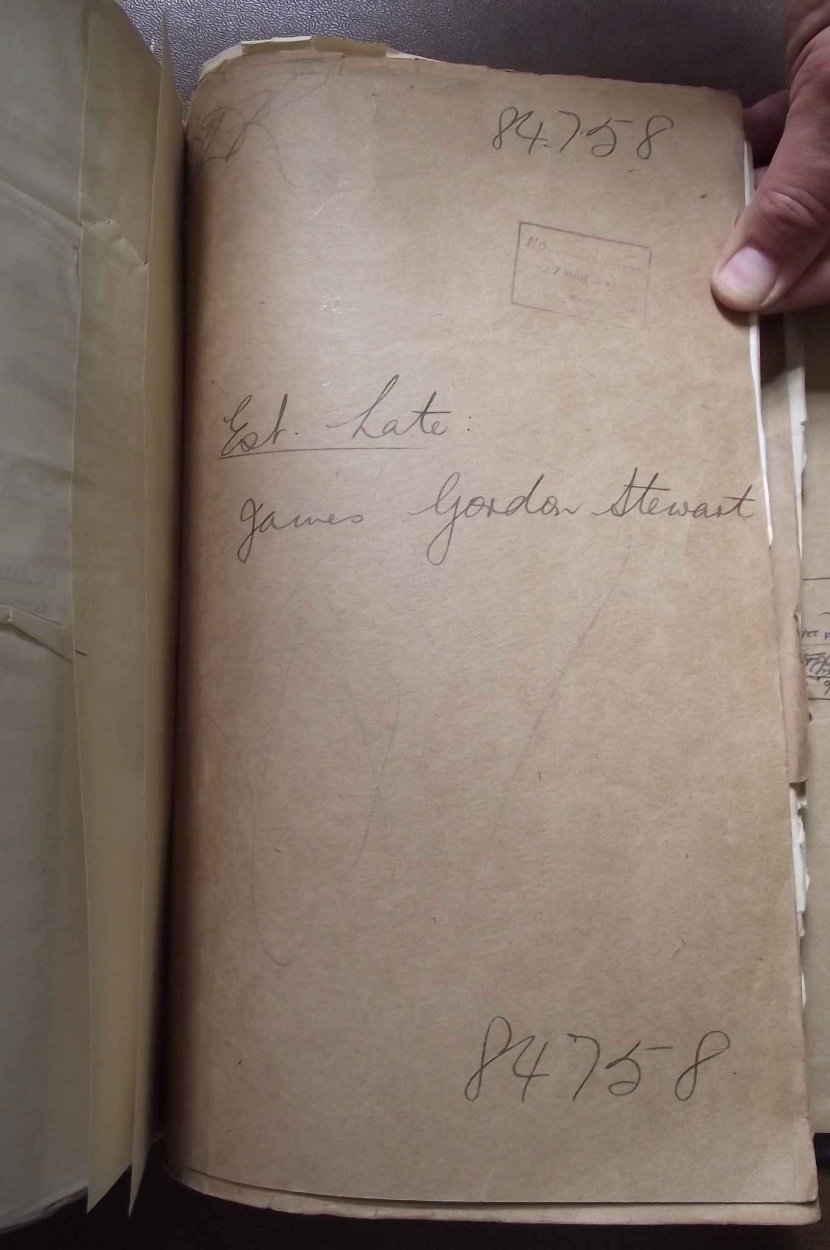 84758
No.
27 MAR
Est. Late:
James Gordon Stewart
84758